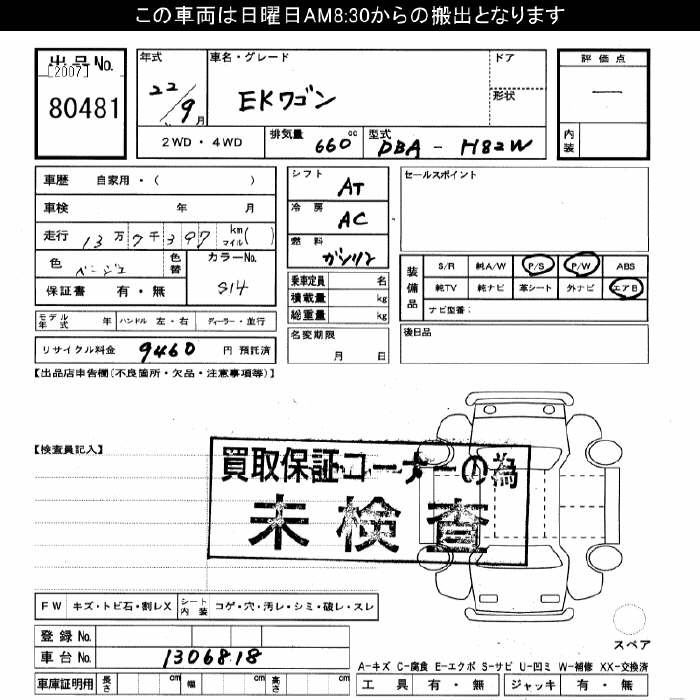 この車両は日曜日AM8:30からの搬出となります
出品No.
[2007]
80481
年式
22/9月
車名・グレード
EKワゴン
ドア
形状
評価点
—
内装
2WD・4WD
排気量
660cc
型式
DBA-H82W
車歴 自家用・( )
車検 年 月
走行 13万7千397 km マイル( )
色 ベージュ 色替
カラーNo.
S14
保証書 有・無
シフト
AT
冷房
AC
燃料
ガソリン
乗車定員 名
積載量 kg
総重量 kg
セールスポイント
装備品
S/R 純A/W P/S P/W ABS
純TV 純ナビ 革シート 外ナビ エアB
ナビ型番:
モデル年式 年 ハンドル 左・右 ディーラー・並行
名変期限
月 日
後日品
リサイクル料金 9460 円 預託済
【出品店申告欄(不良箇所・欠品・注意事項等)】
【検査員記入】
買取保証コーナーの為
未検査
FW キズ・トビ石・割レX シート内装 コゲ・穴・汚レ・シミ・破レ・スレ
スペア
登録No.
車台No. 1306818
A-キズ C-腐食 E-エクボ S-サビ U-凹ミ W-補修 XX-交換済
車庫証明用 長さ cm 幅 cm 高さ cm
工具 有・無 ジャッキ 有・無